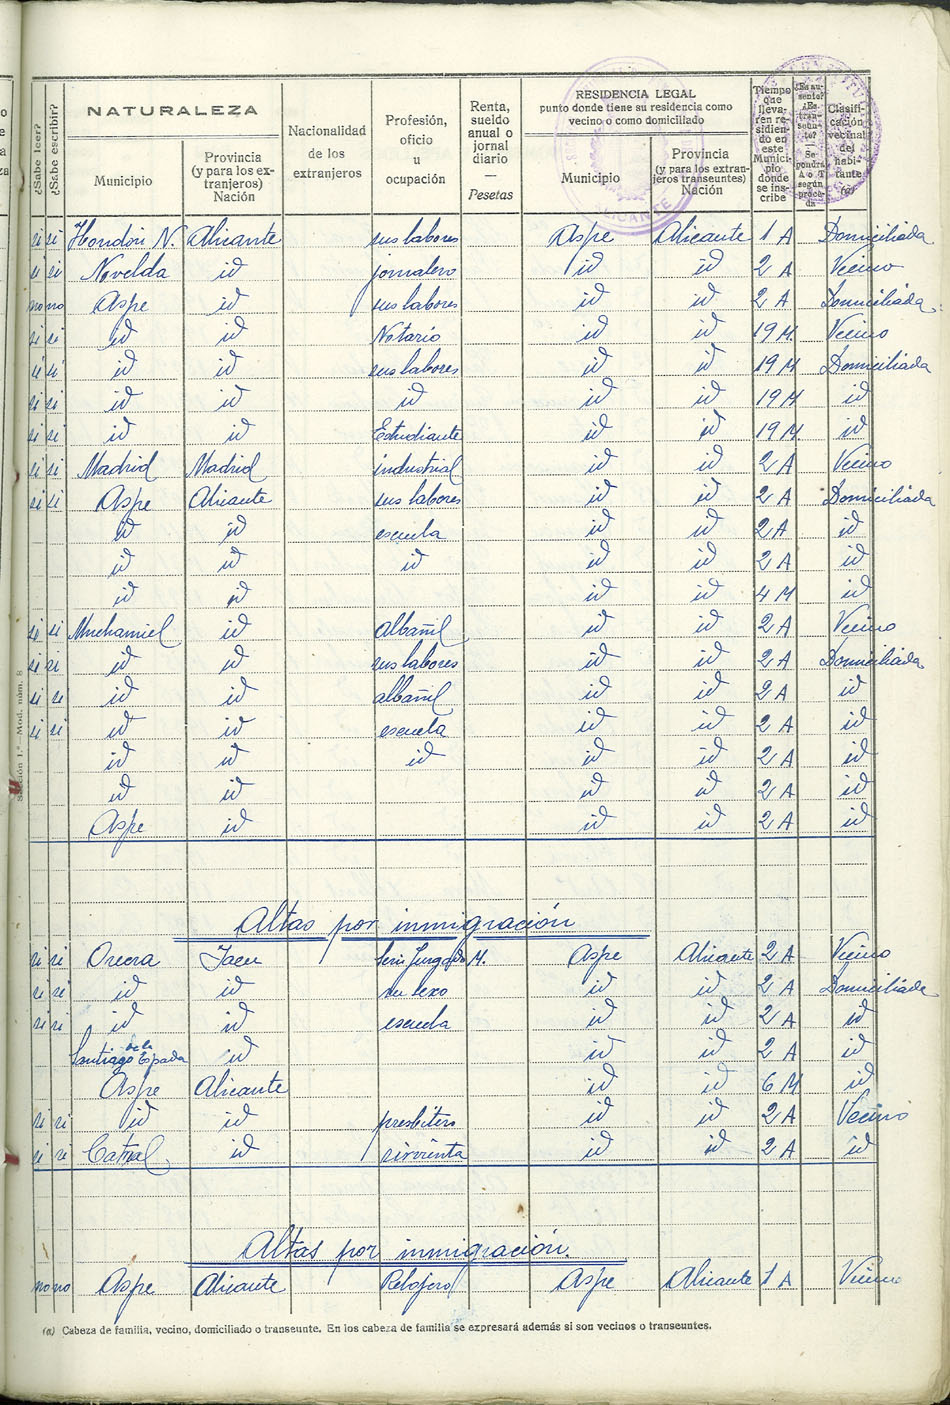 ¿Sabe leer?
¿Sabe escribir?
NATURALEZA
Municipio
Provincia (y para los extranjeros) Nación
Nacionalidad de los extranjeros
Profesión, oficio u ocupación
Renta, sueldo anual o jornal diario — Pesetas
RESIDENCIA LEGAL
punto donde tiene su residencia como vecino o como domiciliado
Municipio
Provincia (y para los extranjeros transeuntes) Nación
Tiempo que lleva-ren residiendo en este Municipio donde se inscribe
¿Es ausente? ¿Es transeunte? Se pondrá A o T según proceda
Clasificación vecinal del habitante (a)
ALICANTE
si si Hondón N. Alicante sus labores Aspe Alicante 1 A Domiciliada
si si Novelda id jornalero id id 2 A Vecino
no no Aspe id sus labores id id 2 A Domiciliada
si si id id Notario id id 19 M. Vecino
si si id id sus labores id id 19 M Domiciliada
si si id id id id id 19 M id
si si id id Estudiante id id 19 M. id
si si Madrid Madrid industrial id id 2 A Vecino
si si Aspe Alicante sus labores id id 2 A Domiciliada
id id escuela id id 2 A id
id id id id id 2 A id
id id id id 4 M id
si si Muchamiel id albañil id id 2 A Vecino
si si id id sus labores id id 2 A Domiciliada
si si id id albañil id id 2 A id
si si id id escuela id id 2 A id
id id id id id 2 A id
id id id id 2 A id
Aspe id id id 2 A id
Altas por inmigración
si si Orcera Jaen Juzgado M. Aspe Alicante 2 A Vecino
si si id id su sexo id id 2 A Domiciliada
si si id id escuela id id 2 A id
Santiago de la Espada id id id 2 A id
Aspe Alicante id id 6 M id
si si id id presbítero id id 2 A Vecino
si si Catral id sirvienta id id 2 A id
Altas por inmigración.
no no Aspe Alicante Relojero Aspe Alicante 1 A Vecino
(a) Cabeza de familia, vecino, domiciliado o transeunte. En los cabeza de familia se expresará además si son vecinos o transeuntes.
Sección 1.ª—Mod. núm. 8